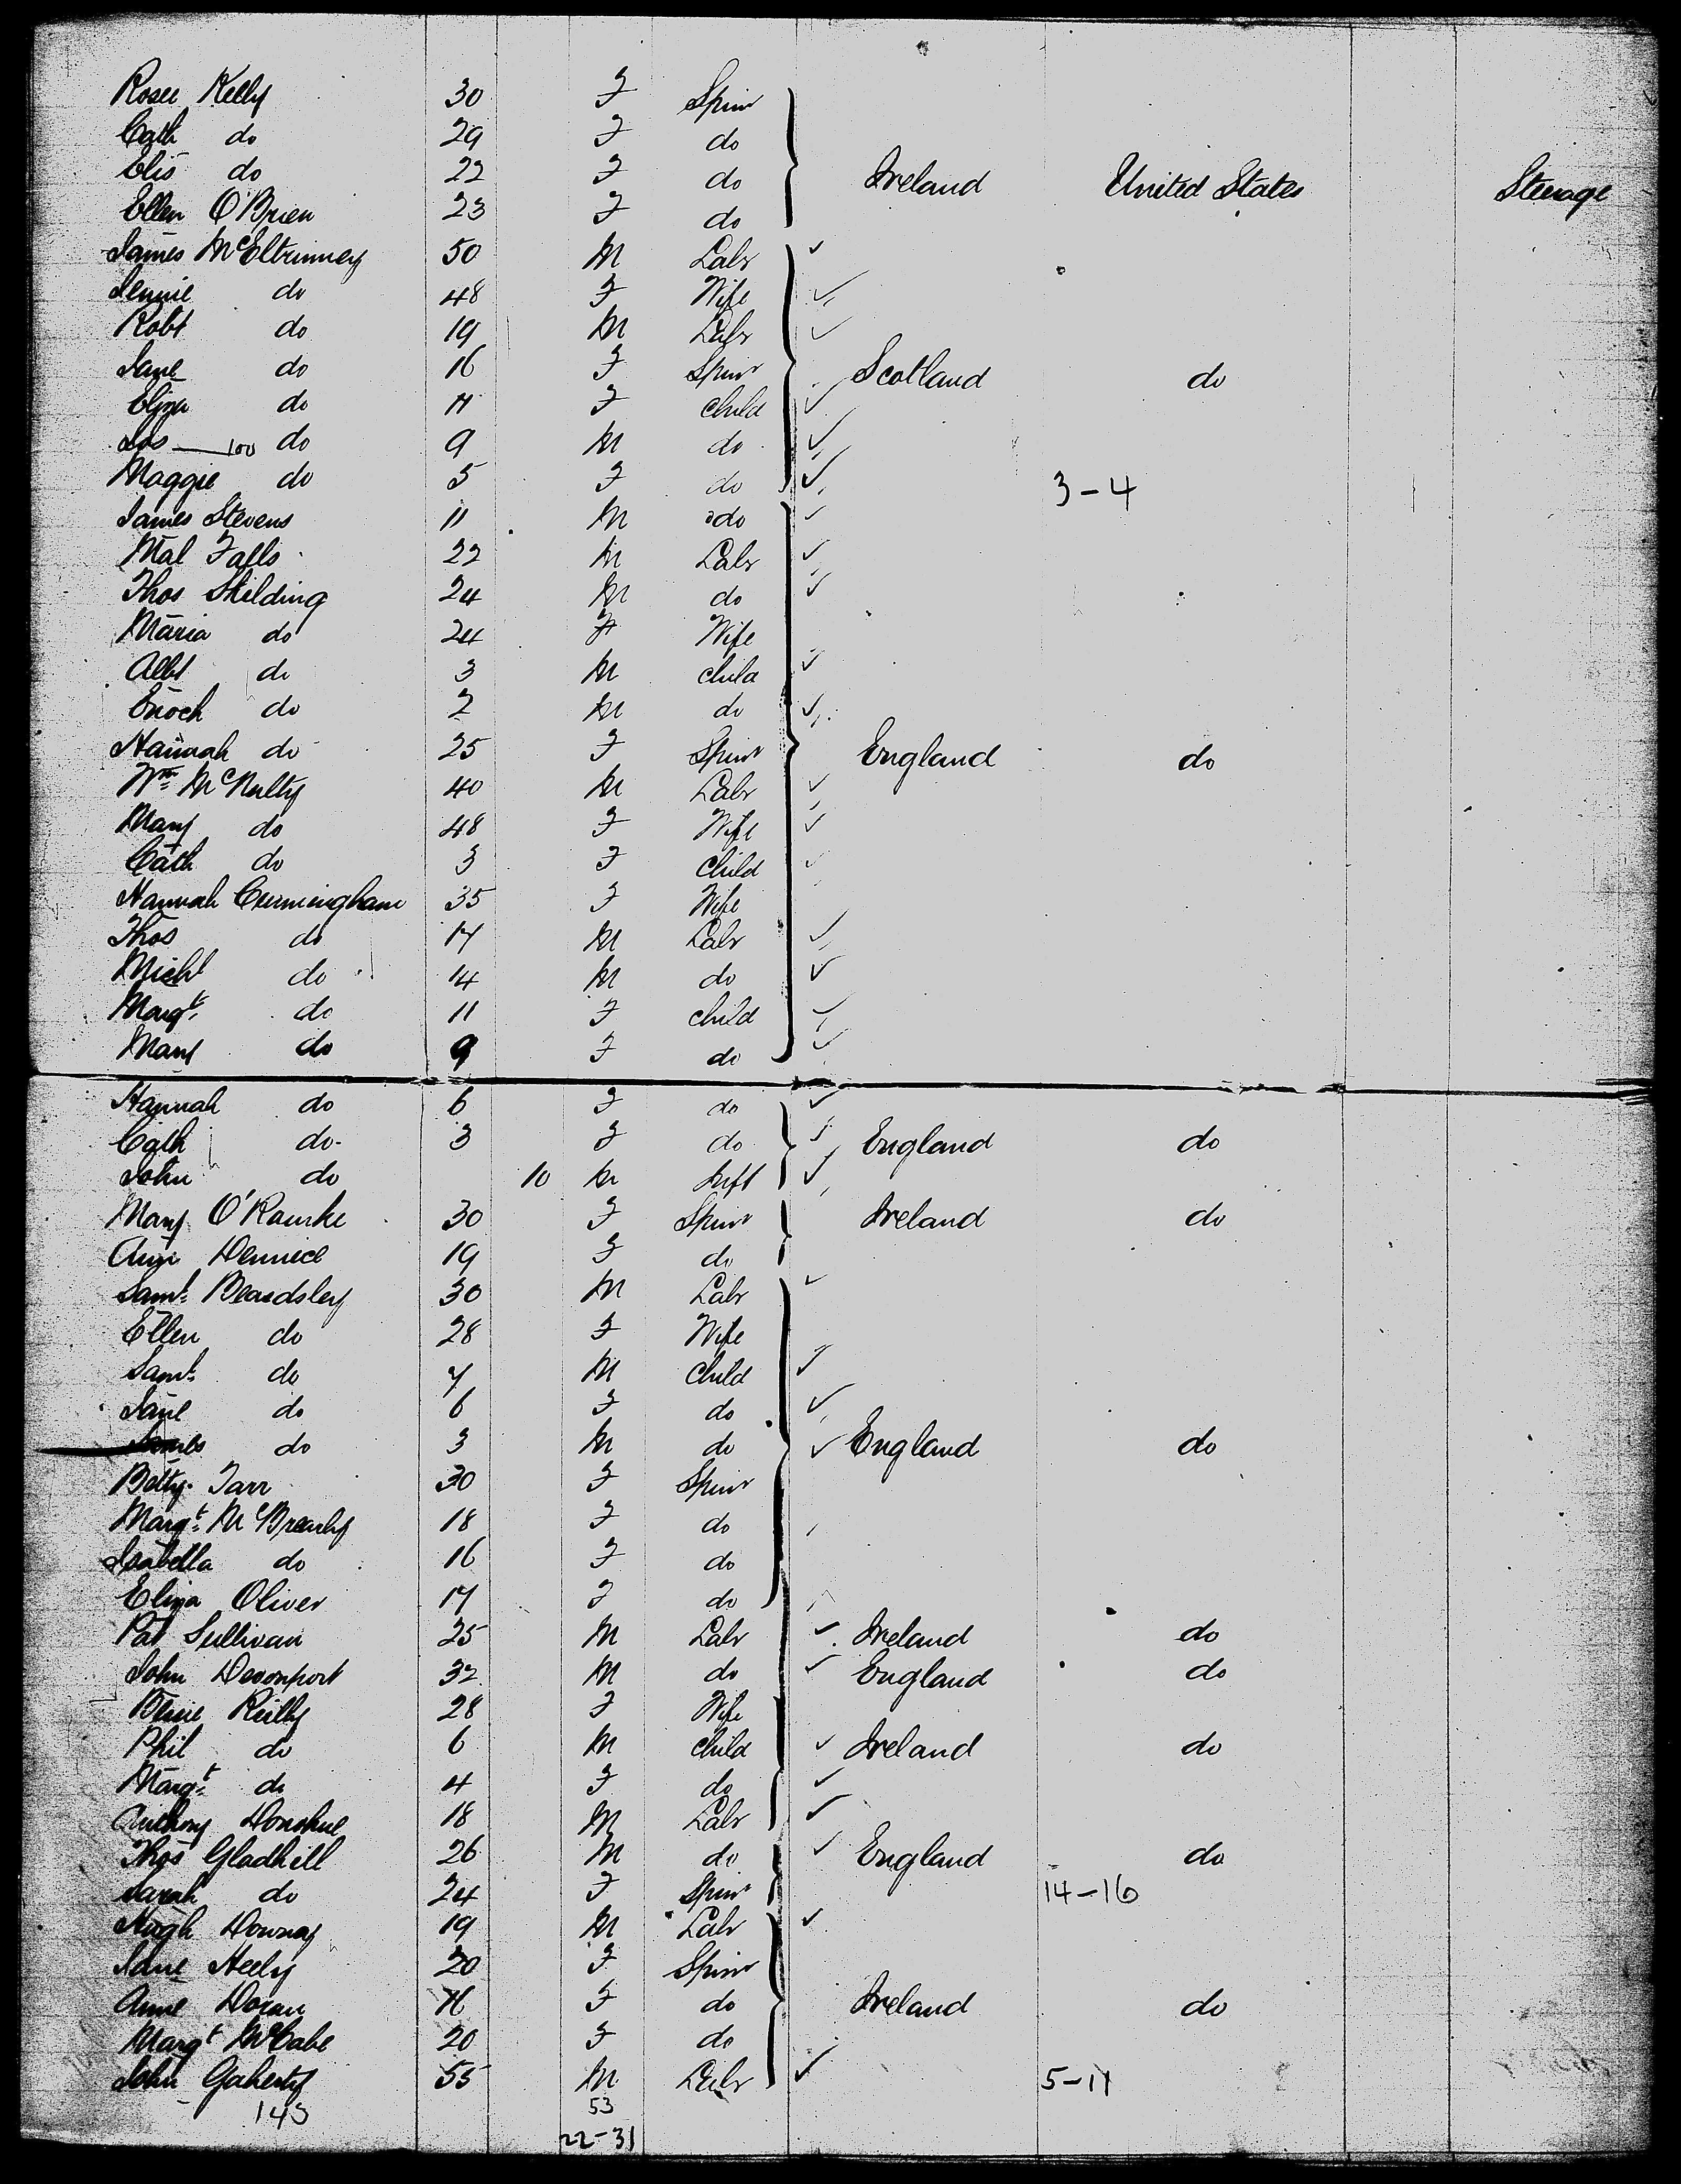 Rosee Kelly 30 F Spinr
Cath do 29 F do
Elis do 22 F do Ireland United States Steerage
Ellen O'Brien 23 F do
James McEltrinney 50 M Labr
Jennie do 48 F Wife
Robt do 19 M Labr
Jane do 16 F Spinr Scotland do
Eliza do 11 F Child
Jas 100 do 9 M do
Maggie do 5 F do 3-4
James Stevens 11 M do
Mal Falls 22 M Labr
Thos Skilding 24 M do
Maria do 24 F Wife
Albt do 3 M child
Enoch do 2 M do
Hannah do 25 F Spinr England do
Wm McNulty 40 M Labr
Mary do 48 F Wife
Cath do 3 F Child
Hannah Cunningham 35 F Wife
Thos do 17 M Labr
Michl do 14 M do
Margt do 11 F child
Mary do 9 F do
Hannah do 6 F do
Cath do 3 F do England do
John do 10 M Inft
Mary O'Rourke 30 F Spinr Ireland do
Ann Dennice 19 F do
Saml Beardsley 30 M Labr
Ellen do 28 F Wife
Saml do 7 M Child
Jane do 6 F do
James do 3 M do England do
Betty Farr 30 F Spinr
Margt McBrearly 18 F do
Isabella do 16 F do
Eliza Oliver 17 F do
Pat Sullivan 25 M Labr Ireland do
John Devonport 32 M do England do
Reilly 28 F Wife
Phil do 6 M child Ireland do
Margt do 4 F do
Anthony Donohue 18 M Labr
Thos Gladhill 26 M do England do
Sarah do 24 F Spinr 14-16
Hugh Downay 19 M Labr
Jane Heely 20 F Spinr
Anne Doran F do Ireland do
Margt McCabe 20 F do
John Gaherty 55 M Labr 5-11
143 53
22-31